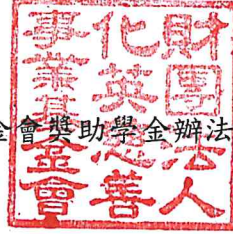 財團法人
化英慈善
事業基金會
金會獎助學金辦法